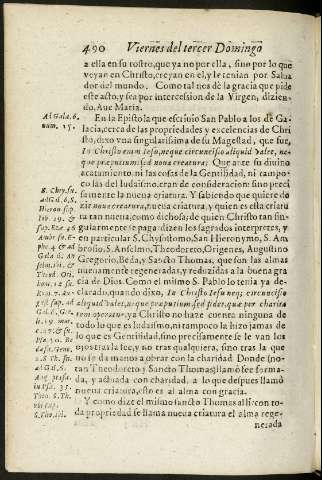 490 Viernes del tercer Domingo
a ella en su rostro, que ya no por ella, sino por lo que
veyan en Christo, creyan en el, y le tenian por Salua
dor del mundo. Como tal nos dè la gracia que pide
este acto, y sea por intercession de la Virgen, dizien-
do, Aue Maria.
Al Gala. 6.
num. 15.
En la Epistola que escriuio San Pablo a los de Ga-
lacia, cerca de las propriedades y excelencias de Chri
sto, dixo vna singularissima de su Magestad, que fue,
In Christo enim Iesu, neque circuncisio aliquid valet, ne-
que præputium: sed noua creatura; Que ante su diuino
acatamiento, ni las cosas de la Gentilidad, ni tampo-
co las del Iudaismo, eran de consideracion: sino preci
samente la nueua criatura. Y sabiendo que quiere de
zir noua creatura, nueua criatura, y quien es ella criatu
ra tan nueua, como dichosa; de quien Christo tan sin-
gularmente se paga: dizen los sagrados interpretes, y
en particular S. Chysostomo, San Hieronymo, S. Am-
brosio, S. Anselmo, Theodoreto, Origenes, Augustino
Gregorio, Beda, y Sancto Thomas, que son las almas
nueuamente regeneradas, y reduzidas a la buena gra
cia de Dios. Como el mismo S. Pablo lo tenia ya de-
clarado, quando dixo, In Christo Iesu neque circuncisio
aliquid valet, neque præputium sed fides, que per charita
tem operatur, ya Christo no haze cuenta ninguna de
todo lo que es Iudaismo, ni tampoco la hizo jamas de
lo que es Gentilidad, sino precisamente se le van los
ojos tras la fee, y no tras qualquiera, sino tras la que
no se da manos a obrar con la charidad. Donde (no-
tan Theodoreto y Sancto Thomas) llamò fee forma-
da, y actuada con charidad, a lo que despues llamò
nueua criatura, esto es al alma con gracia.
Y como dize el mismo sancto Thomas alli: con to-
da propriedad se llama nueua criatura el alma rege-
nerada